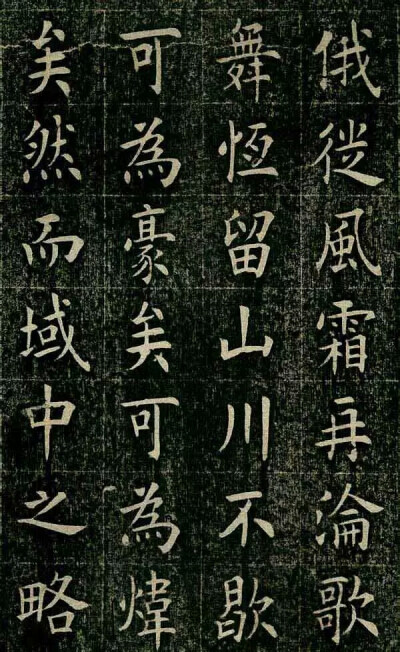 俄從風霜再淪歌
舞恆留山川不歇
可為豪矣可為煒
矣然而域中之略